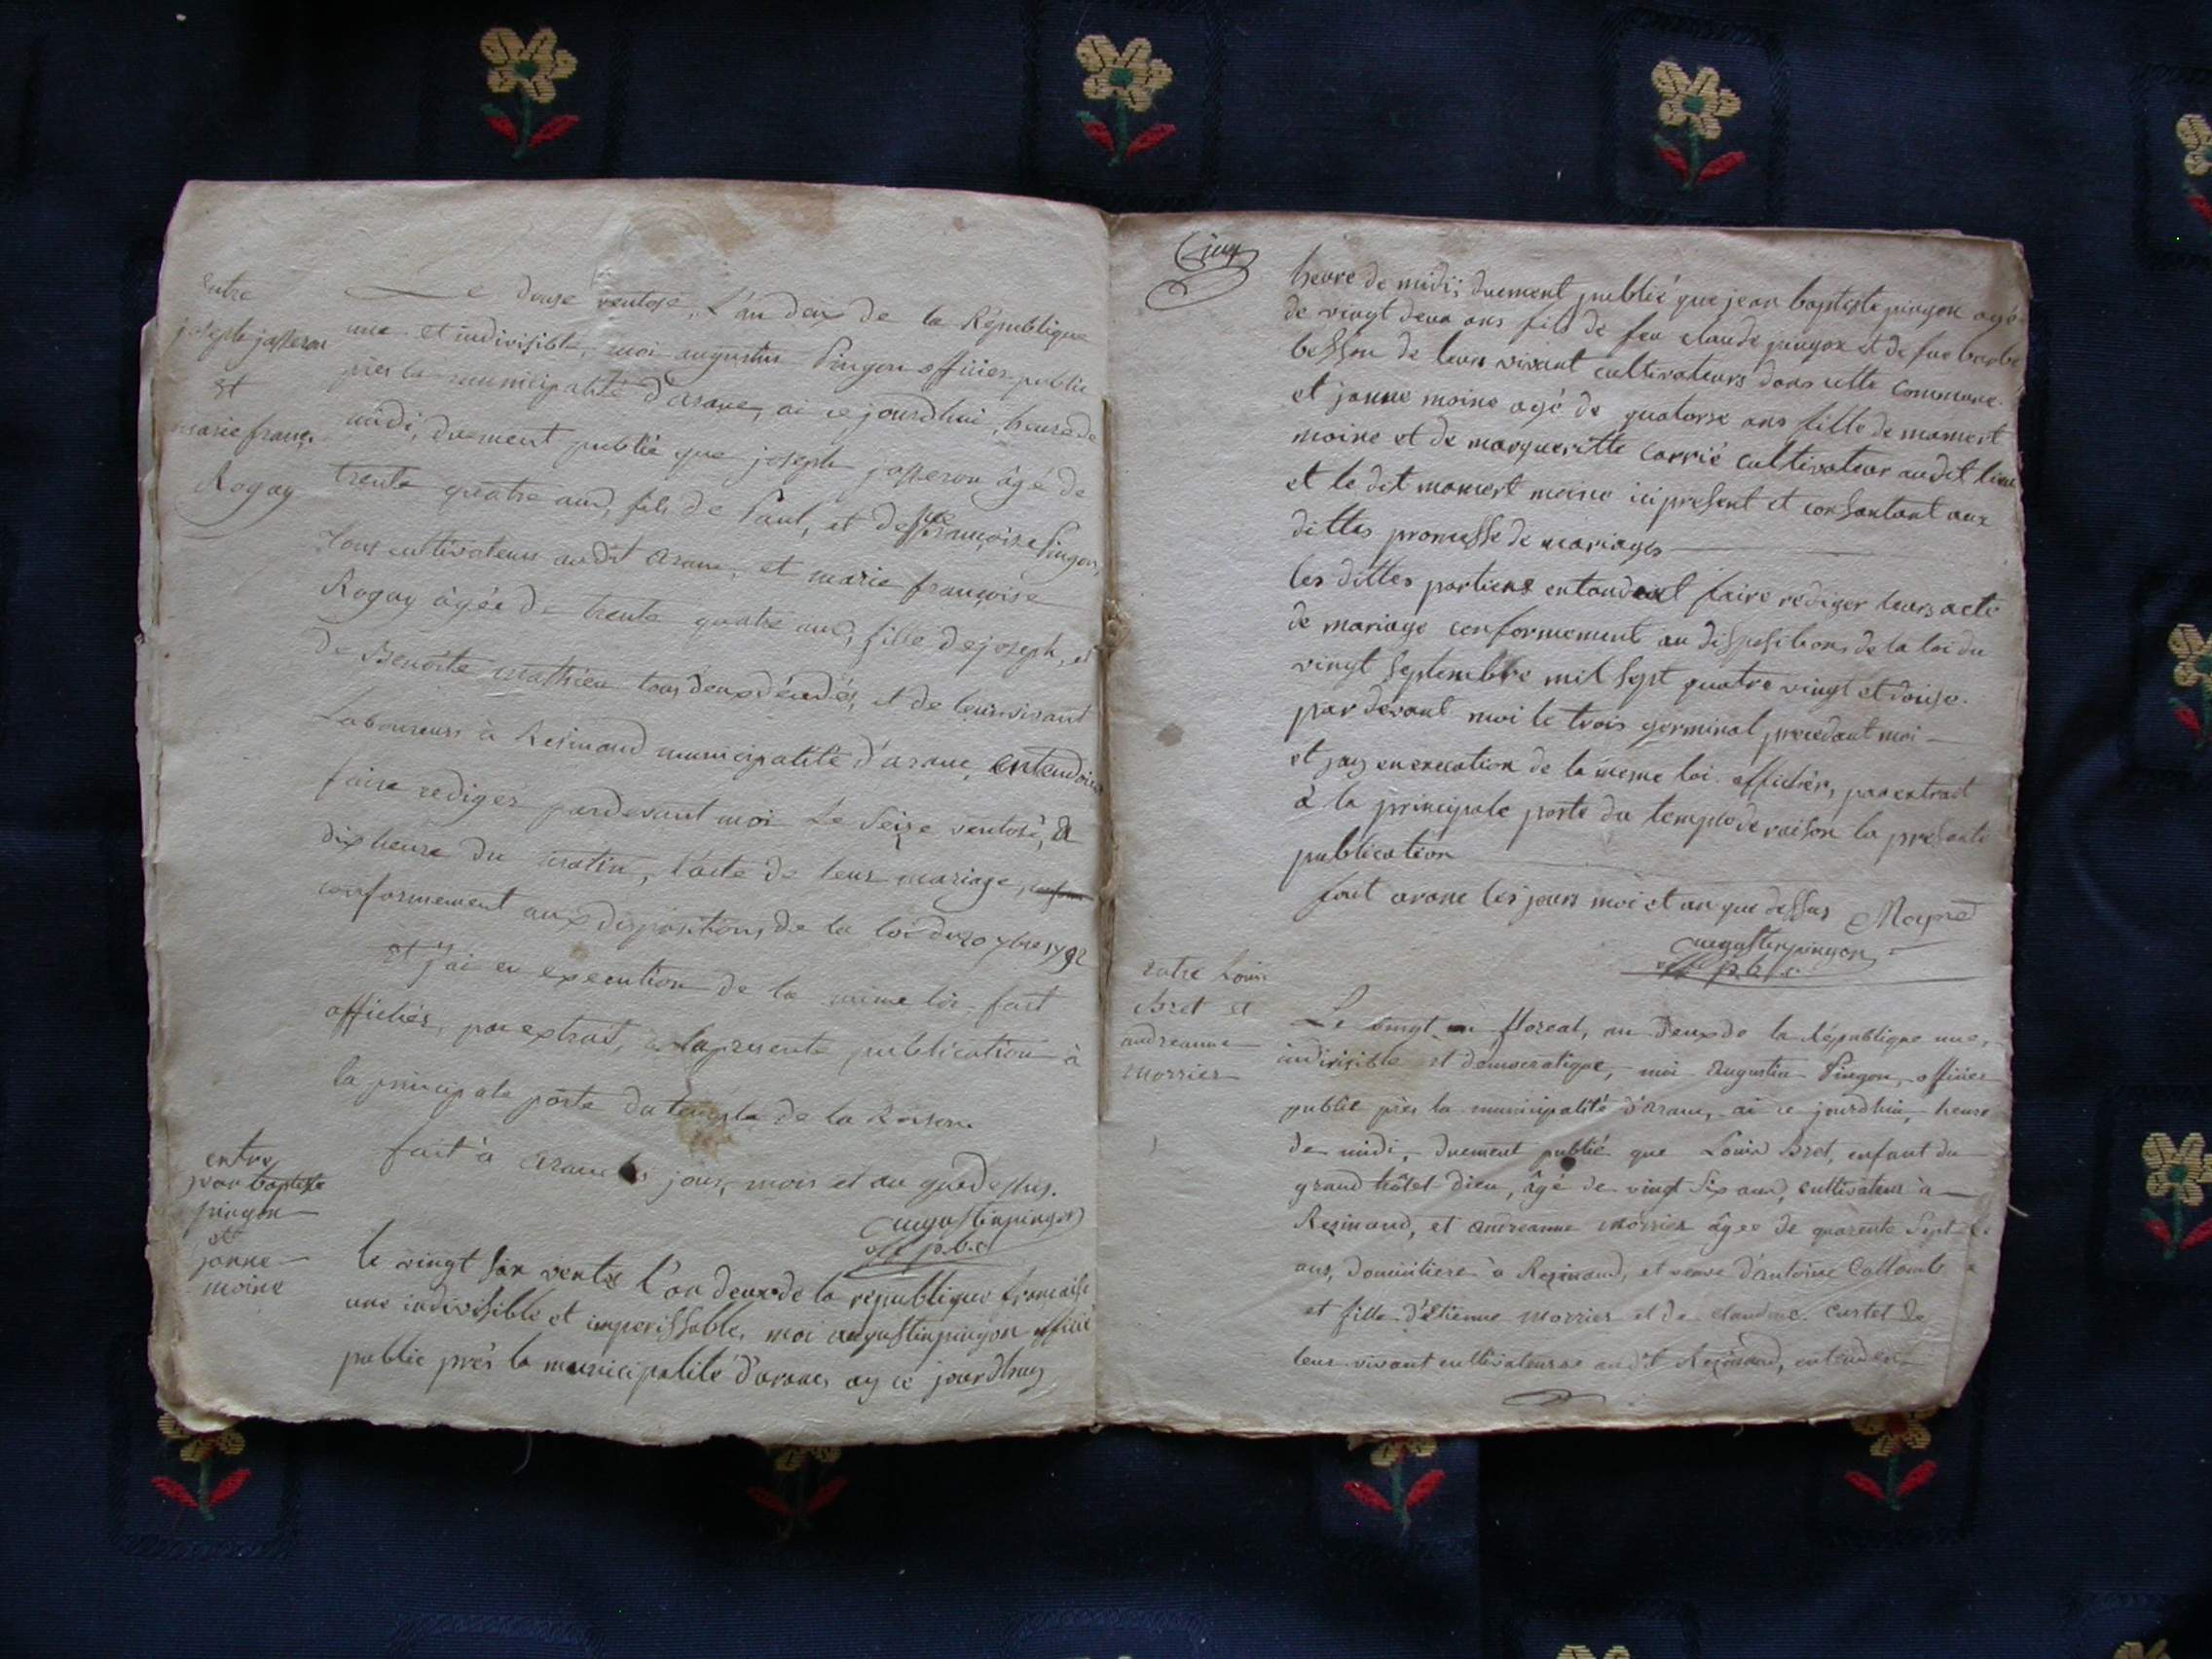 entre
joseph josseron
et
marie franç.
Rogay
Le douze ventose, L'an deux de la République
une et indivisible, moi augustin Pingon officier public
près la municipalité d'arane, ai ce jourdhui, heure de
midi, duement publié que joseph josseron âgé de
trente quatre ans, fils de Paul, et de françoise Pingon,
tous cultivateurs audit arane, et marie françoise
Rogay âgée de trente quatre ans, fille de joseph, et
de Benoite mathieu tous deux décédés, et de leur vivant
Laboureurs à Resinand municipalité d'arane, entendoient
faire rediger pardevant moi Le Seize ventose, à
dix heure du matin, l'acte de leur mariage,
conformement aux dispositions de la loi du 20 7bre 1792
et j'ai en execution de la même loi fait
afficher, par extrait, la presente publication à
la principale porte du temple de la Raison.
fait à arane les jour, mois et an que dessus.
augustin pingon
off p.b.c
entre
jean baptiste
pingon
et
janne
moine
le vingt six ventose l'an deux de la republique francaise
une indivisible et imperissable, moi augustin pingon officié
public près la municipalité d'aranes ay ce jourdhuy
heure de midi; duement publié que jean baptiste pingon agé
de vingt deux ans fils de feu claude pingon et de fue barbe
besson de leur vivant cultivateurs dans cette commune.
et janne moine agé de quatorse ans fille de mamert
moine et de margueritte carrié cultivateur audit lieu
et le dit mamert moine ici present et consantant aux
dittes promesse de mariages
les dittes partiens entandent faire rediger leurs acte
de mariage conformement au dispositions de la loi du
vingt septembre mil sept quatre vingt et douse.
par devant moi le trois germinal precedant moi
et jay en execution de la meme loi afficher, par extrait
à la principale porte du temple de raison la presente
publication
fait arane les jours moi et an que dessus
augustin pingon
off p.b.c
entre Louis
Bret et
andreanne
morrier
Le vingt floreal, an deux de la République une,
indivisible et democratique, moi Augustin Pingon, officier
public près la municipalité d'Arane, ai ce jourdhui, heure
de midi, duement publié que Louis Bret, enfant du
grand hôtel Dieu, âgé de vingt six ans, cultivateur à
Resinand, et andreanne morrier âgée de quarente Sept
ans, domiciliere à Resinand, et veuve d'antoine Callombe
et fille d'Etienne morrier et de claudine Curtet de
leur vivant cultivateurs audit Resinand, entendent